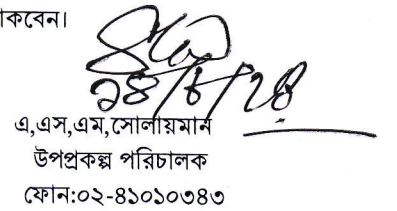 কবেন।
১৪/৮/২৪
এ,এস,এম,সোলায়মান
উপপ্রকল্প পরিচালক
ফোন:০২-৪১০১০৩৪৩